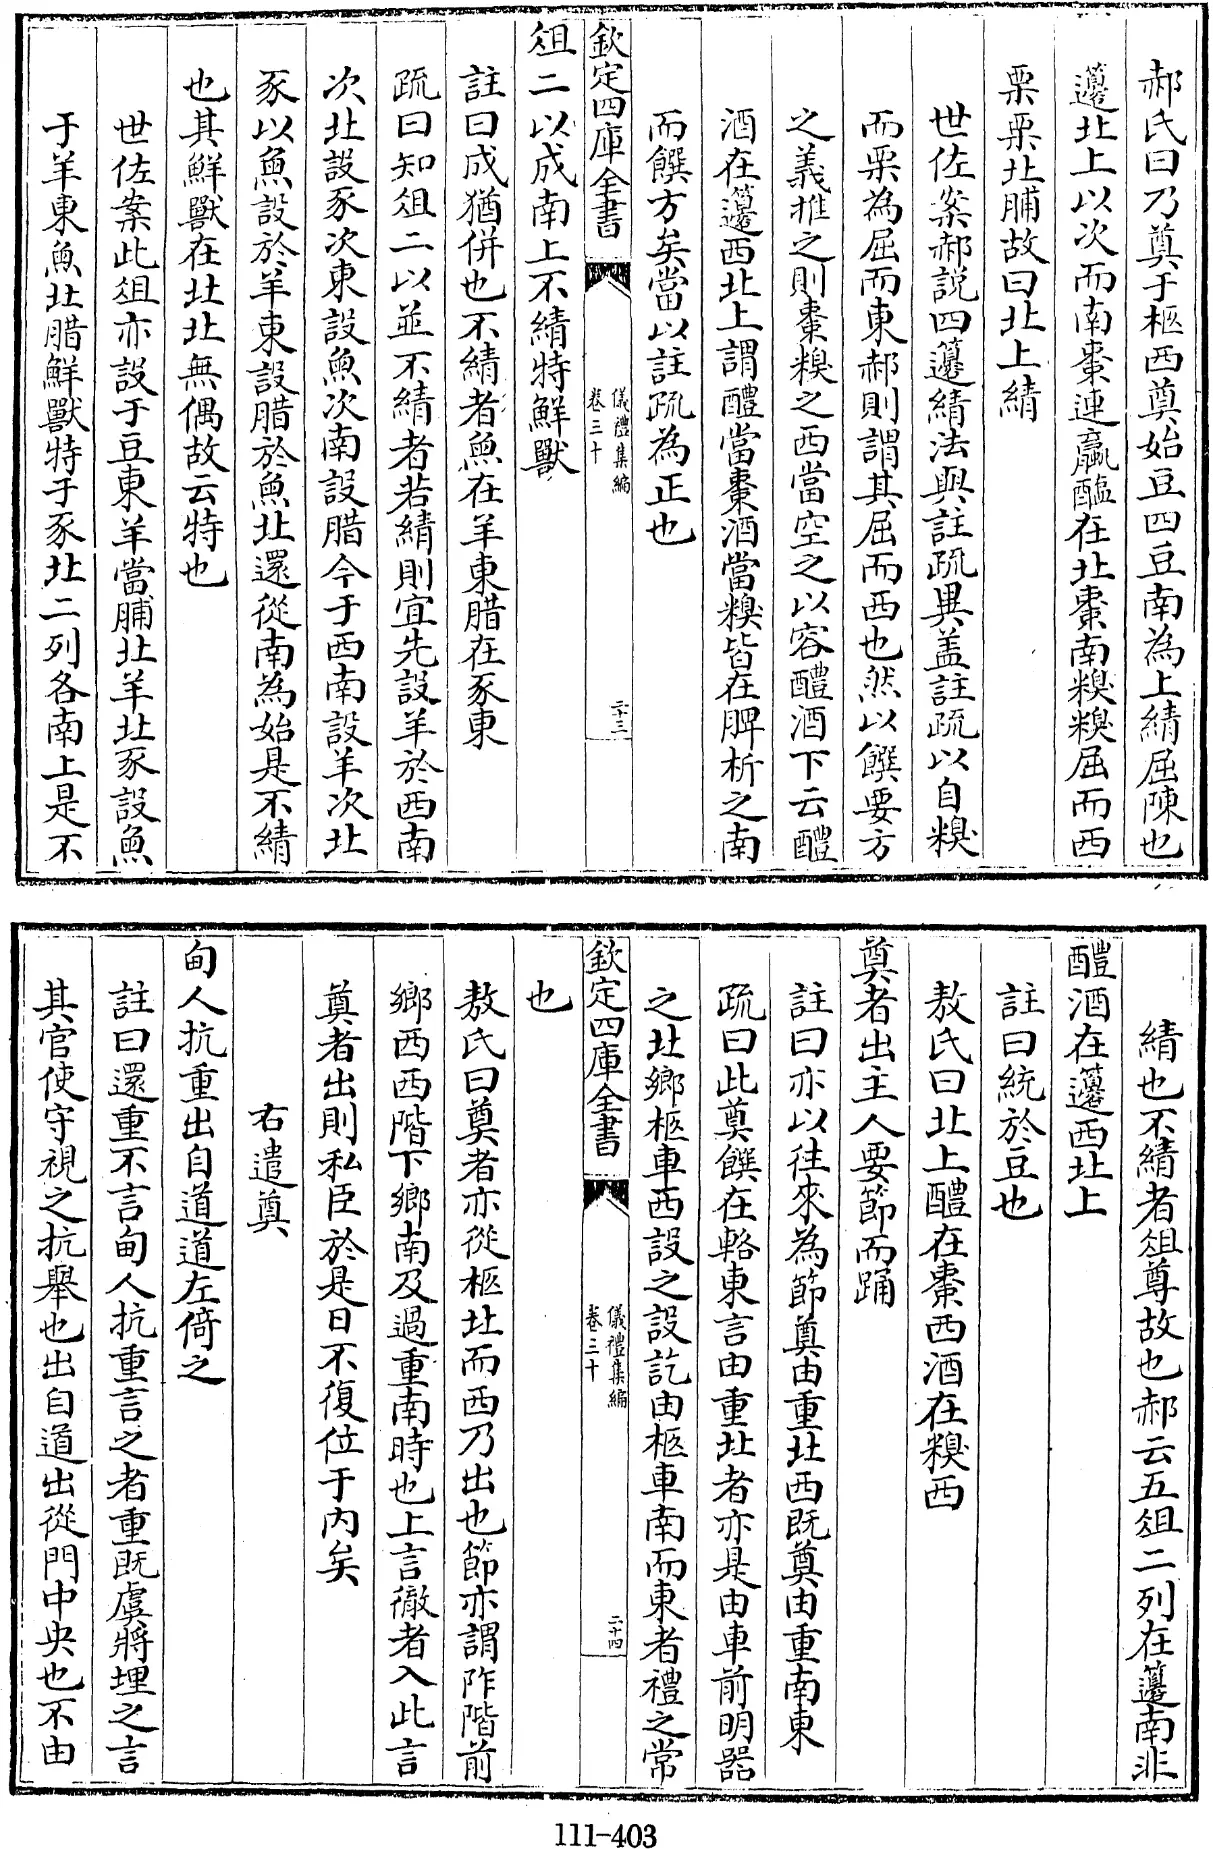 郝氏曰乃奠于柩西奠始豆四豆南為上綪屈陳也
籩北上以次而南棗連蠃醢在北棗南糗糗屈而西
栗栗北脯故曰北上綪
世佐案郝説四籩綪法與註疏異盖註疏以自糗
而栗為屈而東郝則謂其屈而西也然以饌要方
之義推之則棗糗之西當空之以容醴酒下云醴
酒在籩西北上謂醴當棗酒當糗皆在脾析之南
而饌方矣當以註疏為正也
欽定四庫全書
儀禮集編
卷三十
二十三
俎二以成南上不綪特鮮獸
註曰成猶併也不綪者魚在羊東腊在豕東
疏曰知俎二以並不綪者若綪則宜先設羊於西南
次北設豕次東設魚次南設腊今于西南設羊次北
豕以魚設於羊東設腊於魚北還從南為始是不綪
也其鮮獸在北北無偶故云特也
世佐案此俎亦設于豆東羊當脯北羊北豕設魚
于羊東魚北腊鮮獸特于豕北二列各南上是不
綪也不綪者俎尊故也郝云五俎二列在籩南非
醴酒在籩西北上
註曰統於豆也
敖氏曰北上醴在棗西酒在糗西
奠者出主人要節而踊
註曰亦以往來為節奠由重北西既奠由重南東
疏曰此奠饌在輅東言由重北者亦是由車前明器
之北鄉柩車西設之設訖由柩車南而東者禮之常
欽定四庫全書
儀禮集編
卷三十
二十四
也
敖氏曰奠者亦從柩北而西乃出也節亦謂阼階前
鄉西西階下鄉南及過重南時也上言徹者入此言
奠者出則私臣於是日不復位于内矣
右遣奠
甸人抗重出自道道左倚之
註曰還重不言甸人抗重言之者重既虞將埋之言
其官使守視之抗舉也出自道出從門中央也不由
111-403